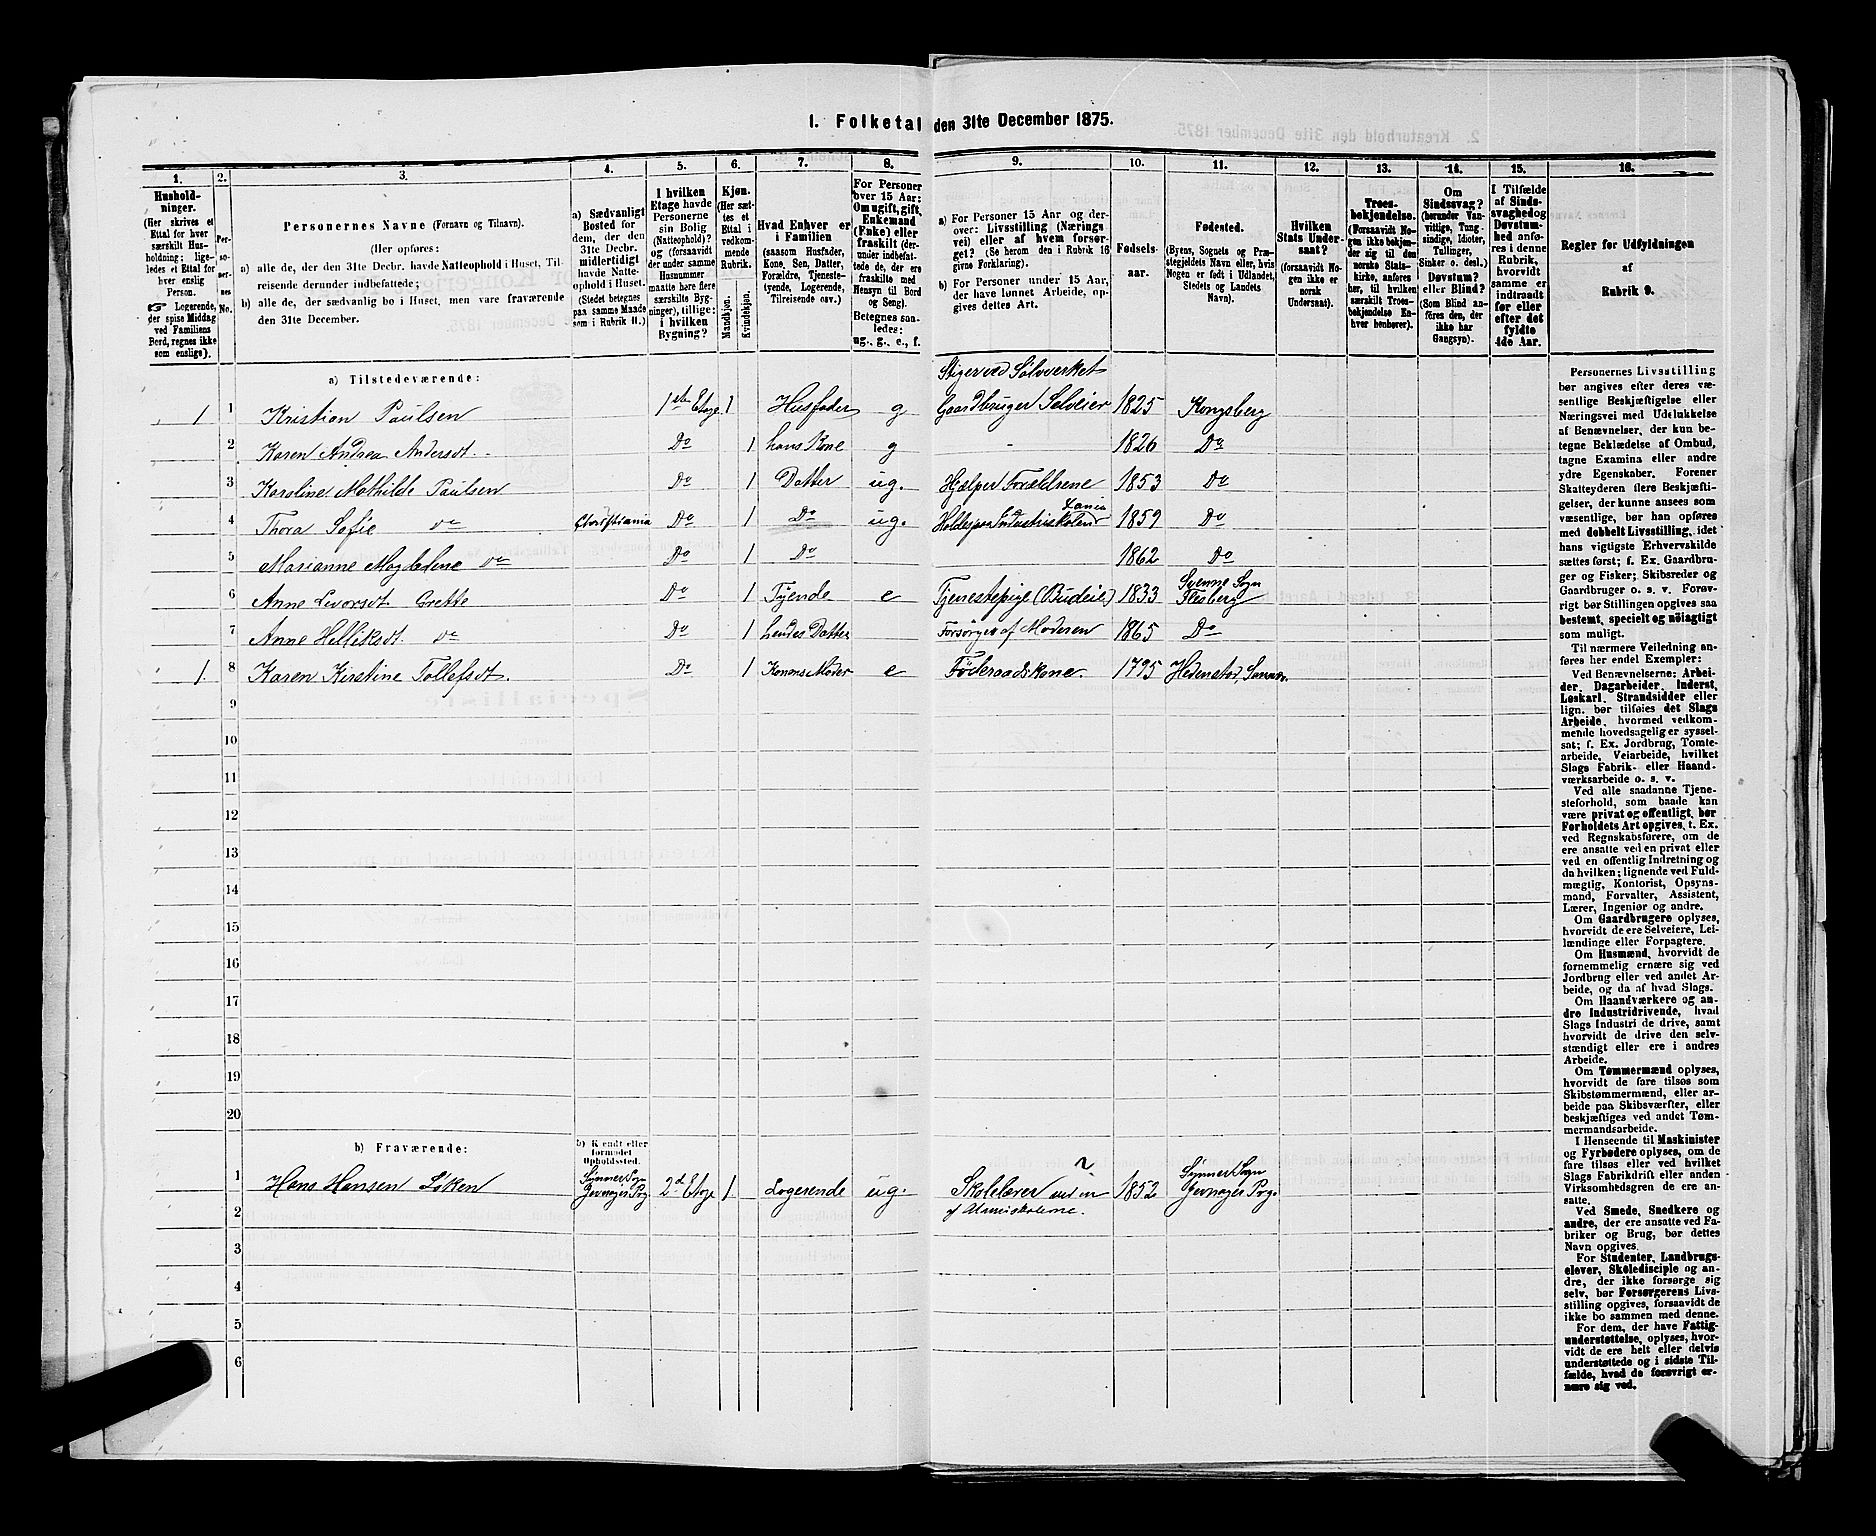 1. Folketal den 31te December 1875.
1. 2. 3. 4. 5. 6. 7. 8. 9. 10. 11. 12. 13. 14. 15. 16.
Hushold-
ninger.
(Her skrives et
Ettal for hver
særskilt Hus-
holdning; lige-
ledes et Ettal for
hver enslig
Person.
☞ Logerende,
der spise Middag
ved Familiens
Bord, regnes ikke
som enslige).
Per-
so-
ner-
nes
No.
Personernes Navne (Fornavn og Tilnavn).
(Her opføres:
a) alle de, der den 31te Decbr. havde Natteophold i Huset, Til-
reisende derunder indbefattede;
b) alle de, der sædvanlig bo i Huset, men vare fraværende
den 31te December.
a) Sædvanligt
Bosted for
dem, der den
31te Decbr.
midlertidigt
havde Natte-
ophold i Huset.
(Stedet betegnes
paa samme Maade
som i Rubrik 11.)
I hvilken
Etage havde
Personerne
sin Bolig
(Natteophold)?
og (forsaavidt
der under samme
Husnummer
maatte høre flere
særskilte Byg-
ninger), tillige:
i hvilken
Bygning?
Kjøn.
(Her sæt-
tes et
Ettal i
vedkom-
mende
Rubrik.
Mandkjøn.
Kvindekjøn.
Hvad Enhver er
i Familien
(saasom Husfader,
Kone, Søn, Datter,
Forældre, Tjeneste-
tyende, Logerende,
Tilreisende osv.)
For Personer
over 15 Aar:
Om ugift, gift,
Enkemand
(Enke) eller
fraskilt (der-
under indbefat-
tede de, der ere
fraskilte med
Hensyn til Bord
og Seng).
Betegnes saa-
ledes:
ug., g., e., f.
a) For Personer 15 Aar og der-
over: Livsstilling (Nærings
vei) eller af hvem forsør-
get? (Se herom den i Rubrik 16
givne Forklaring).
b) For Personer under 15 Aar,
der have lønnet Arbeide, op-
gives dettes Art.
Fødsels-
aar.
Fødested.
(Byens, Sognets og Præ-
stegjeldets Navn eller, hvis
Nogen er født i Udlandet,
Stedets og Landets
Navn).
Hvilken
Stats Under-
saat?
(forsaavidt No-
gen ikke er
norsk
Undersaat).
Troes-
bekjendelse.
(Forsaavidt No-
gen ikke beken-
der sig til den
norske Stats-
kirke, anføres
her, til hvilken
særskilt Troes-
bekjendelse En-
hver henhører).
Om
Sindssvag?
(herunder Van-
vittige, Tung-
sindige, Idioter,
Tullinger,
Sinker o. desl.)
Døvstum?
eller Blind?
(Som Blind an-
føres den, der
ikke har
Gangsyn).
I Tilfælde
af Sinds-
svaghed og
Døvstum-
hed anfø-
res i denne
Rubrik,
hvorvidt
samme er
indtraadt
før eller
efter det
fyldte
4de Aar.
Regler for Udfyldningen
af
Rubrik 9.
a) Tilstedeværende:
Stiger ved Sølvverket
1 1 Kristian Paulsen 1ste Etage 1 Husfader g Gaardbruger Selveier 1825 Kongsberg
2 Karen Andrea Andersdt. Do 1 hans Kone g - 1826 Do
3 Karoline Mathilde Paulsen Do 1 Datter ug. Hjælper Forældrene 1853 Do
4 Thora Sofie do Christiania Do 1 Do ug. Holdes paa Industriskolen i Xania 1859 Do
5 Marianne Magdelene do Do 1 Do 1862 Do
6 Anne Levorsdt Grette Do 1 Tyende e Tjenestepige (Budeie) 1833 Svenne Sogn Flesberg
7 Anne Helliksdt. do Do 1 hendes Datter Forsørges af Moderen 1865 Do
1 8 Karen Kirstine Tollefsdt. Do 1 Konens Moder e Føderaadskone. 1795 Hedenstad, Sandsv.
9
10
11
12
13
14
15
16
17
18
19
20
b) Fraværende:
b) Kjendt eller
formodet
Opholdssted.
1 Hans Hansen Løken Søndre Sogn Jevnager Prg 2d Etage 1 Logerende ug. Skolelærer ved en af Almueskolerne. 1852 Jevnager Prg.
2
3
4
5
6
Personernes Livsstilling
bør angives efter deres væ-
sentlige Beskjæftigelse eller
Næringsvei med Udelukkelse
af Benævnelser, der kun be-
tegne Beklædelse af Ombud,
tagne Examina eller andre
ydre Egenskaber. Forener
Skatteyderen flere Beskjæfti-
gelser, der kunne ansees som
væsentlige, bør han opføres
med dobbelt Livsstilling, idet
hans vigtigste Erhvervskilde
sættes først; f. Ex. Gaardbru-
ger og Fisker; Skibsreder og
Gaardbruger o. s. v. Forøv-
rigt bør Stillingen opgives saa
bestemt, specielt og nøiagtigt
som muligt.
Til nærmere Veiledning an-
føres her endel Exempler:
Ved Benævnelserne: Arbei-
der, Dagarbeider, Inderst,
Løskarl, Strandsidder eller
lign. bør tilføies det Slags
Arbeide, hvormed vedkom-
mende hovedsagelig er syssel-
sat; f. Ex. Jordbrug, Tomte-
arbeide, Veiarbeide, hvilket
Slags Fabrik- eller Haand-
værksarbeide o. s. v.
Ved alle saadanne Tjene-
steforhold, som baade kan
være privat og offentligt, bør
Forholdets Art opgives, t. Ex.
ved Regnskabsførere, om de
ere ansatte ved en privat eller
ved en offentlig Indretning og
da hvilken; lignende ved Fuld-
mægtig, Kontorist, Opsyns-
mand, Forvalter, Assistent,
Lærer, Ingeniør og andre.
Om Gaardbrugere oplyses,
hvorvidt de ere Selveiere, Lei-
lændinge eller Forpagtere.
Om Husmænd, hvorvidt de
fornemmelig ernære sig ved
Jordbrug eller ved andet Ar-
beide, og da af hvad Slags.
Om Haandværkere og an-
dre Industridrivende, hvad
Slags Industri de drive, samt
hvorvidt de drive den selv-
stændigt eller ere i andres
Arbeide.
Om Tømmermænd oplyses,
hvorvidt de fare tilsøs som
Skibstømmermænd, eller ar-
beide paa Skibsværfter, eller
beskjæftiges ved andet Tøm-
mermandsarbeide.
I Henseende til Maskinister
og Fyrbødere oplyses, om de
fare tilsøs eller ved hvilket
Slags Fabrikdrift eller anden
Virksomhedsgren de ere an-
satte.
Ved Smede, Snedkere og
andre, der ere ansatte ved Fa-
briker og Brug, bør dettes
Navn opgives.
For Studenter, Landbrugs-
elever, Skoledisciple og an-
dre, der ikke forsørge sig
selv, bør Forsørgerens Livs-
stilling opgives, forsaavidt de
ikke bo sammen med denne.
For dem, der have Fattig-
understøttelse, oplyses, hvor-
vidt de ere helt eller delvis
understøttede og i sidste Til-
fælde, hvad de forøvrigt er-
nære sig ved.